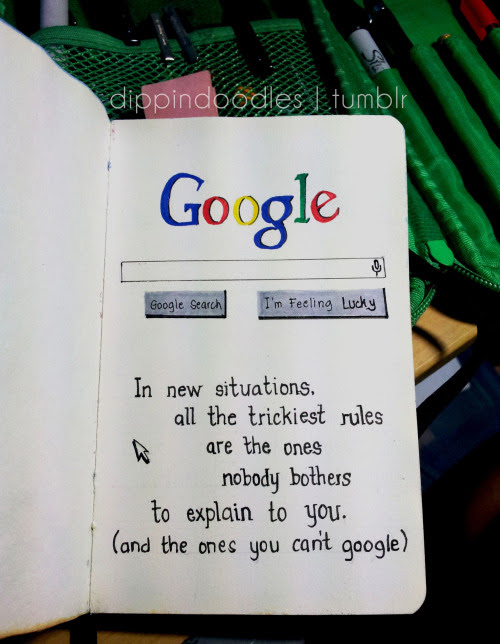 dippindoodles | tumblr
Google
Google Search
I'm Feeling Lucky
In new situations,
all the trickiest rules
are the ones
nobody bothers
to explain to you.
(and the ones you can't google)